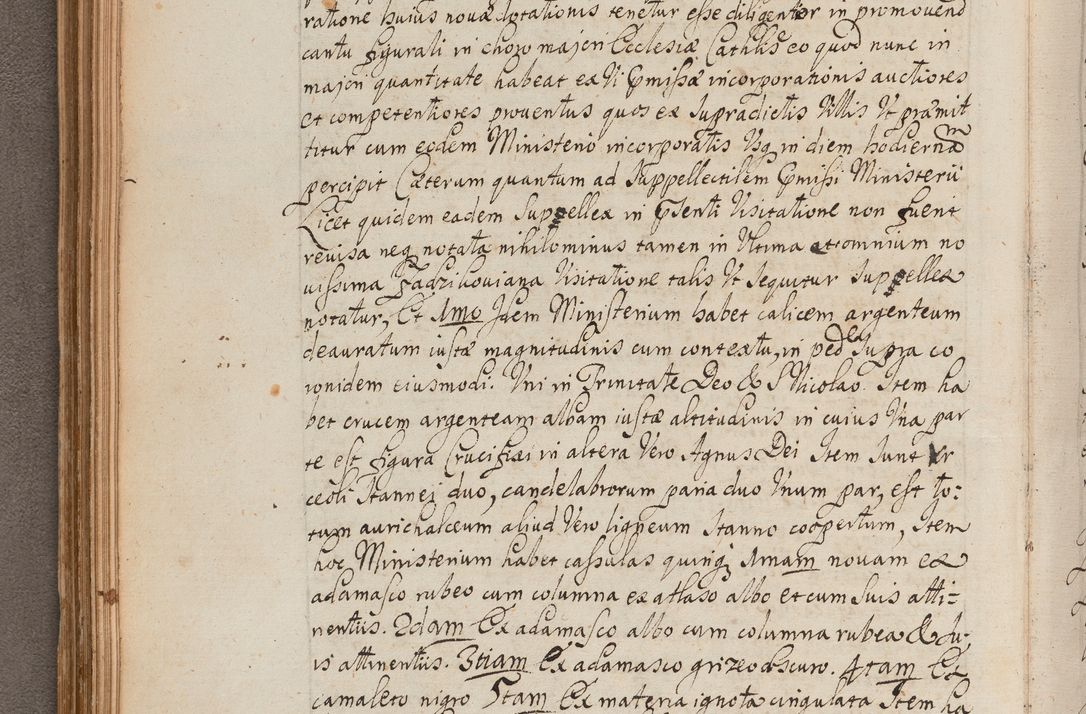 ratione huius novæ dotationis tenetur esse diligentior in promovend
cantu figurali in choro majori Ecclesiæ Cathlis eo quod nunc in
majori quantitate habeat ex vi præmissæ incorporationis auctiores
et competentiores proventus quos ex supradictis villis ut præmit
titur cum eodem Ministerio incorporatis usq in diem hodiernam
percipit Cæterum quantum ad suppellectilem præmissi Ministerii
Licet quidem eadem suppellex in præsenti visitatione non fuerit
revisa neq notata nihilominus tamen in ultima et omnium no
vissima Zadzikoviana visitatione talis ut sequitur suppellex
notatur, Et 1mo Idem Ministerium habet calicem argenteum
deauratum iustæ magnitudinis cum contextu, in pede supra co
ronidem eiusmodi: Uni in Trinitate Deo & S Nicolao. Item ha
bet crucem argenteam albam iustæ altitudinis in cuius una par
te est figura Crucifixi in altera vero Agnus Dei Item sunt vr
ceoli stannei duo, candelabrorum paria duo unum par, est to:
tum aurichalceum aliud vero ligneum stanno coopertum, Item
hoc Ministerium habet cassulas quinq; 1mam novam ex
adamasco rubeo cum columna ex atlaso albo et cum suis atti:
nentiis. 2dam Ex adamasco albo cum columna rubea & su:
is attinentiis. 3tiam Ex adamasco grizeo obscuro. 4tam Ex
camaleto nigro 5tam Ex materia ignota cingulata Item ha